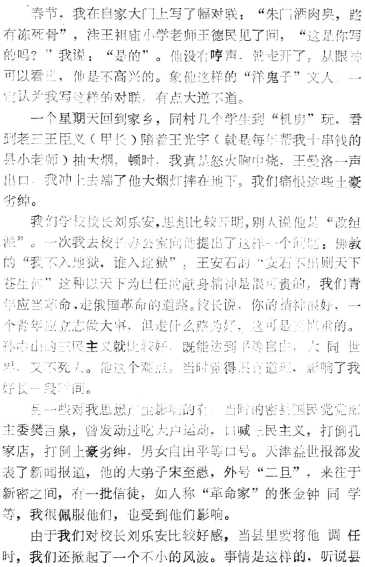 春节，我在自家大门上写了幅对联：“朱门酒肉臭，路
有冻死骨”，洼王祖庙小学老师王德民见了问，“这是你写
的吗？”我说：“是的”。他没有哼声，就走开了。从眼神
可以看出，他是不高兴的。象他这样的“洋鬼子”文人，一
定认为我写这样的对联，有点大逆不道。
一个星期天回到家乡，同村几个学生到“机房”玩，看
到老三王臣义（甲长）陪着王光宇（就是每年帮我十串钱的
县小老师）抽大烟，顿时，我真是怒火胸中烧，王晏洛一声
出口，我冲上去端了他大烟灯摔在地下，我们痛恨这些土豪
劣绅。
我们学校校长刘乐安，思想比较开明，别人说他是“改组
派”。一次我去校长办公室向他提出了这样一个问题：佛教
的“我不入地狱，谁入地狱”；王安石的“安石不出则天下
苍生何”这种以天下为已任的献身精神是很可贵的，我们青
年应当革命，走俄国革命的道路。校长说，你的精神很好，一
个青年应立志做大事，但走什么路为好，这可是要慎重的。
孙中山的三民主义就比较好，既能达到平等自由，大同世
界，又不死人。他这个观点，当时觉得很有道理，影响了我
好长一段时间。
另一些对我思想产生影响的有，当时的密县国民党党部
主委樊百泉，曾发动过吃大户运动，口喊三民主义，打倒孔
家店，打倒土豪劣绅，男女自由平等口号。天津益世报都发
表了新闻报道，他的大弟子宋至愚，外号“二旦”，来往于
新密之间，有一批信徒，如人称“革命家”的张金钟同学
等，我很佩服他们，也受到他们影响。
由于我们对校长刘乐安比较好感，当县里要将他调任
时，我们还掀起了一个不小的风波。事情是这样的，听说县